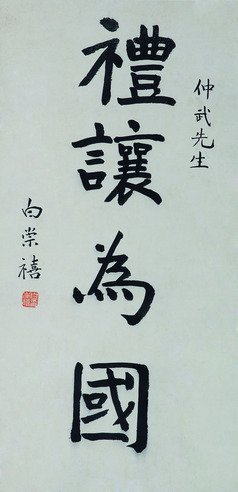 仲武先生
禮讓為國
白崇禧